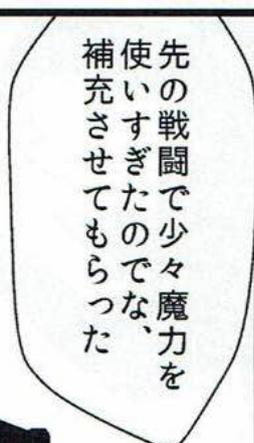 先の戦闘で少々魔力を
使いすぎたのでな、
補充させてもらった